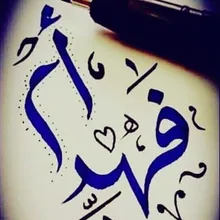 أم
فهد